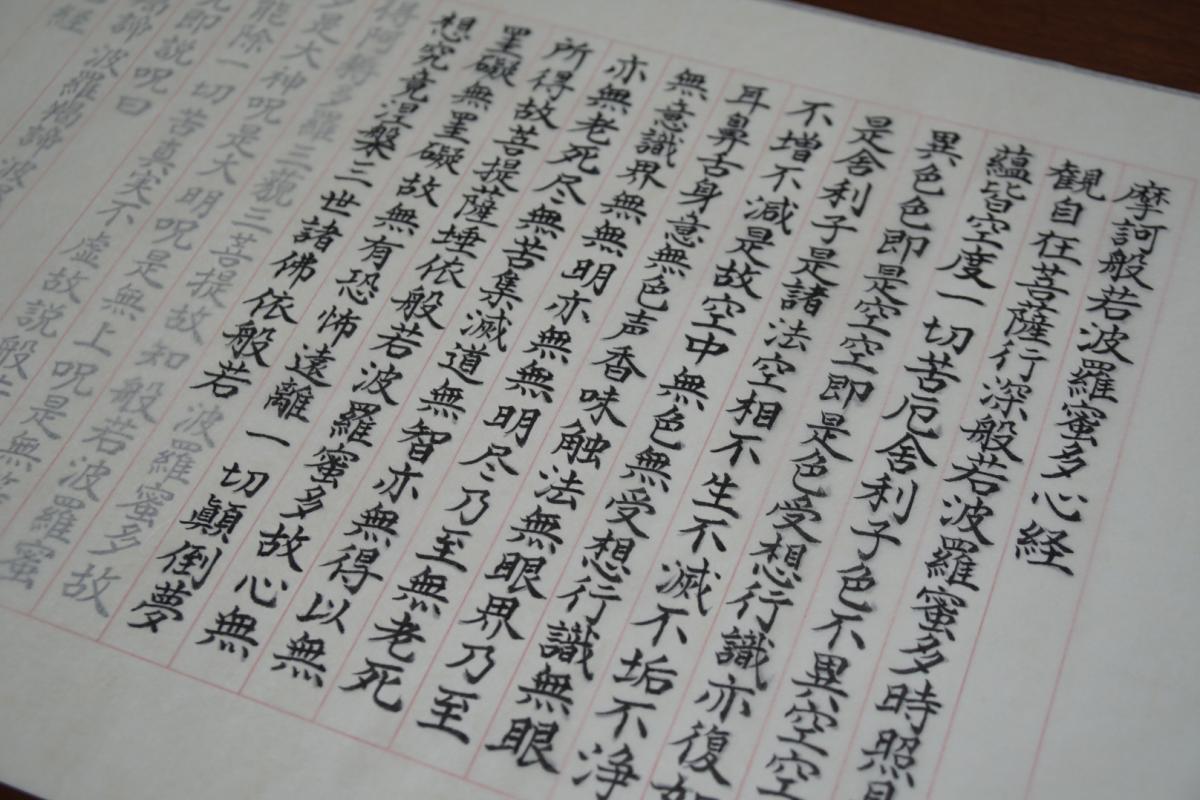 摩訶般若波羅蜜多心経
観自在菩薩行深般若波羅蜜多時照見
蘊皆空度一切苦厄舎利子色不異空空
異色色即是空空即是色受想行識亦復如
是舎利子是諸法空相不生不滅不垢不浄
不増不減是故空中無色無受想行識無眼
耳鼻舌身意無色声香味触法無眼界乃至
無意識界無無明亦無無明尽乃至無老死
亦無老死尽無苦集滅道無智亦無得以無
所得故菩提薩埵依般若波羅蜜多故心無
罣礙無罣礙故無有恐怖遠離一切顛倒夢
想究竟涅槃三世諸佛依般若波羅蜜多故
得阿耨多羅三藐三菩提故知般若波羅蜜
多是大神呪是大明呪是無上呪是無等
能除一切苦真実不虚故説般若
即説呪曰
羯諦 波羅羯諦 波
経